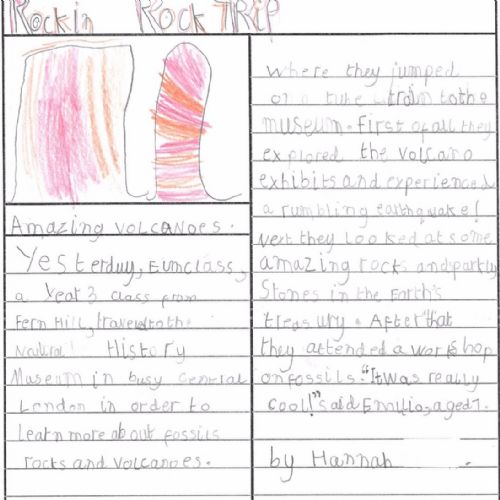 Rockin Rock TRip
Amazing volcanoes.
Yesterday, Elm class,
a Year 3 class from
Fern Hill, traveled to the
Natural History
Museum in busy central
London in order to
learn more about fossils
rocks and volcanoes.
where they jumped
on a tube train to the
museum. First of all they
explored the volcano
exhibits and experienced
a rumbling earthquake!
Next they looked at some
amazing rocks and sparkly
Stones in the Earth's
treasury. After that
they attended a workshop
on fossils. "It was really
cool!" said Emilio, aged 7.
by Hannah.